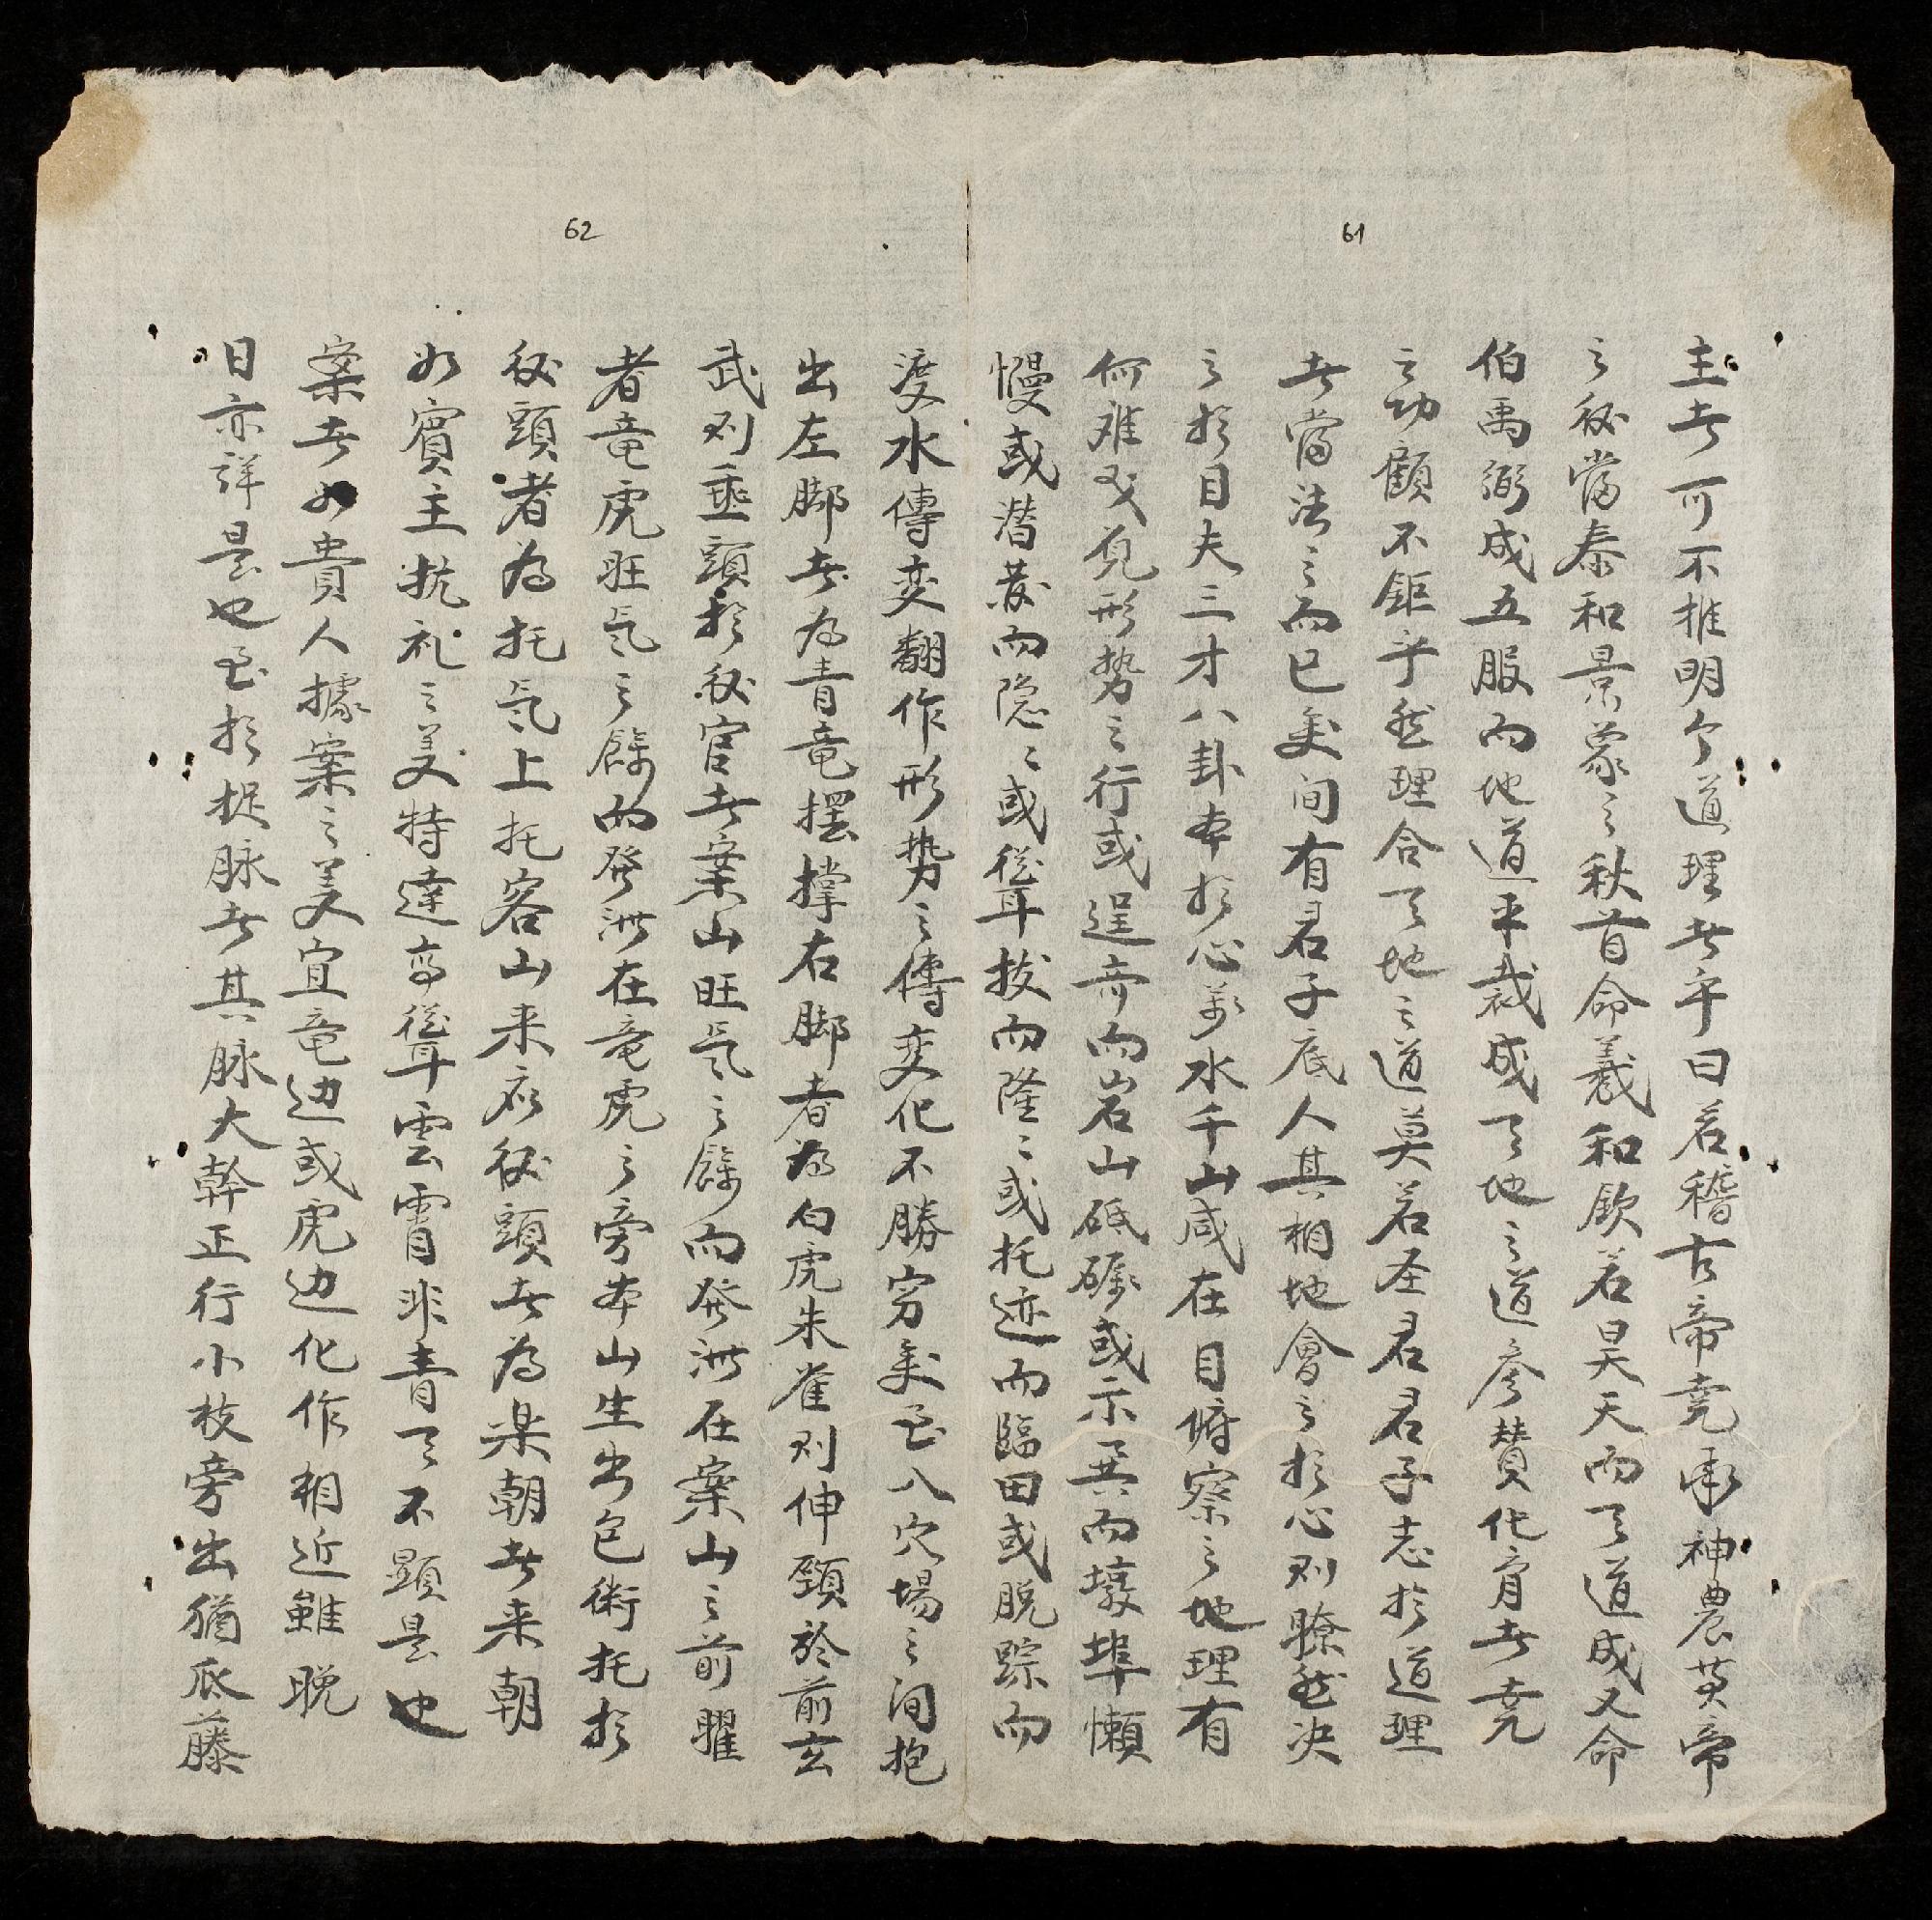 61
主者可不推明個道理者乎曰若稽古帝尭承神農黃帝
之後當泰和景象之秋首命羲和欽若昊天而天道成又命
伯禹弼成五服而地道平裁成天地之道參贊化育者尭
之功顧不鉅乎然理合天地之道莫若圣君君子志於道理
者當法之而已矣间有君子底人其相地會之於心则瞭然决
之於目夫三才八卦本於心萬水千山咸在目俯察之地理有
何难哉見形势之行或逞竒而岩山砥礪或示異而壊埠懶
慢或潜藏而隐〻或聳拔而隆〻或托迹而臨田或脱踪而
渡水傳变翻作形势之傳变化不勝穷矣至八穴場之间抱
62
出左脚者为青竜摆撑右脚者為白虎朱雀则伸頸於前玄
武则垂頭於後官者案山旺氣之餘而發洩在案山之前曜
者竜虎旺氣之餘而發洩在竜虎之旁本山生出包術托於
後頭者为托氣上托客山来於後頭者為楽朝者来朝
如賓主抗礼之美特達高聳雲霄非青天不顕是也
案者如貴人據案之美宜竜边或虎边化作相近雖晚
日亦详是也至於捉脉者其脉大幹正行小枝旁出猶瓜藤